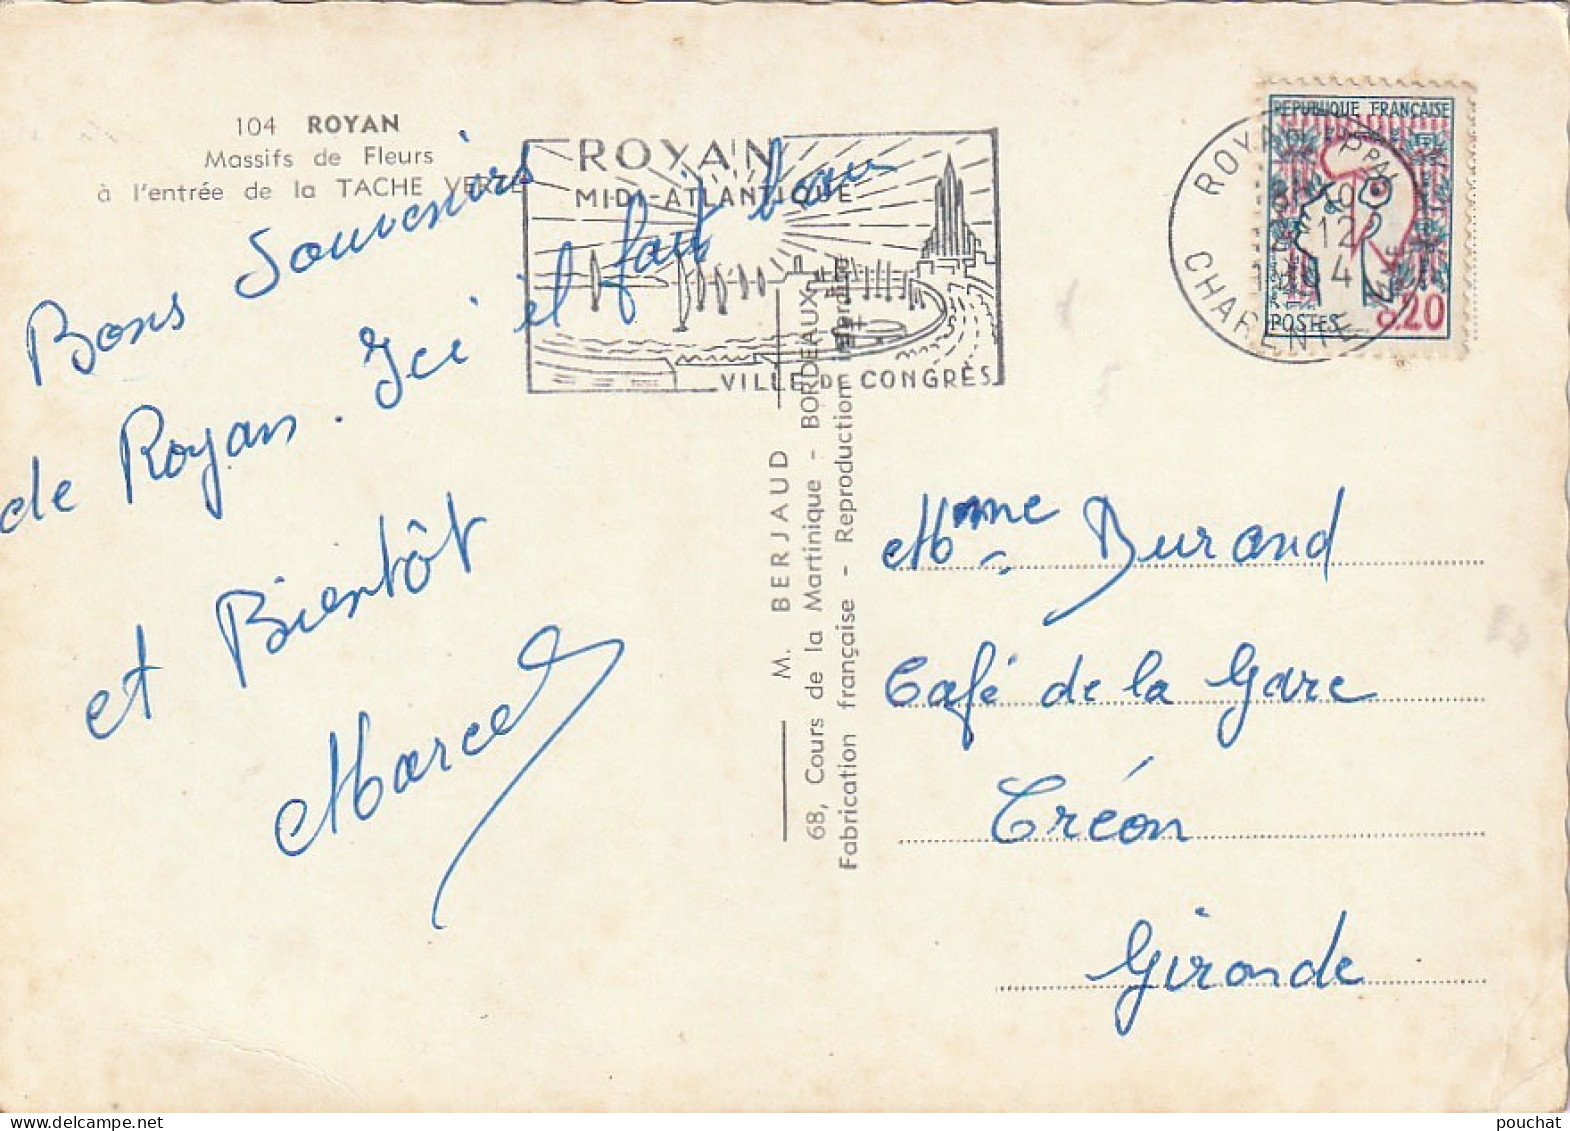 104 ROYAN
Massifs de Fleurs
à l'entrée de la TACHE VERTE
Bons Souvenirs
de Royan. Ici il fait beau
et Bientôt
Marcel
ROYAN
MIDI-ATLANTIQUE
VILLE DE CONGRÈS
M. BERJAUD
68, Cours de la Martinique - BORDEAUX
Fabrication française - Reproduction interdite
REPUBLIQUE FRANÇAISE
POSTES 0.20
ROYAN PPAL
12
CHARENTE
Mme Durand
Café de la Gare
Créon
Gironde
pouchat